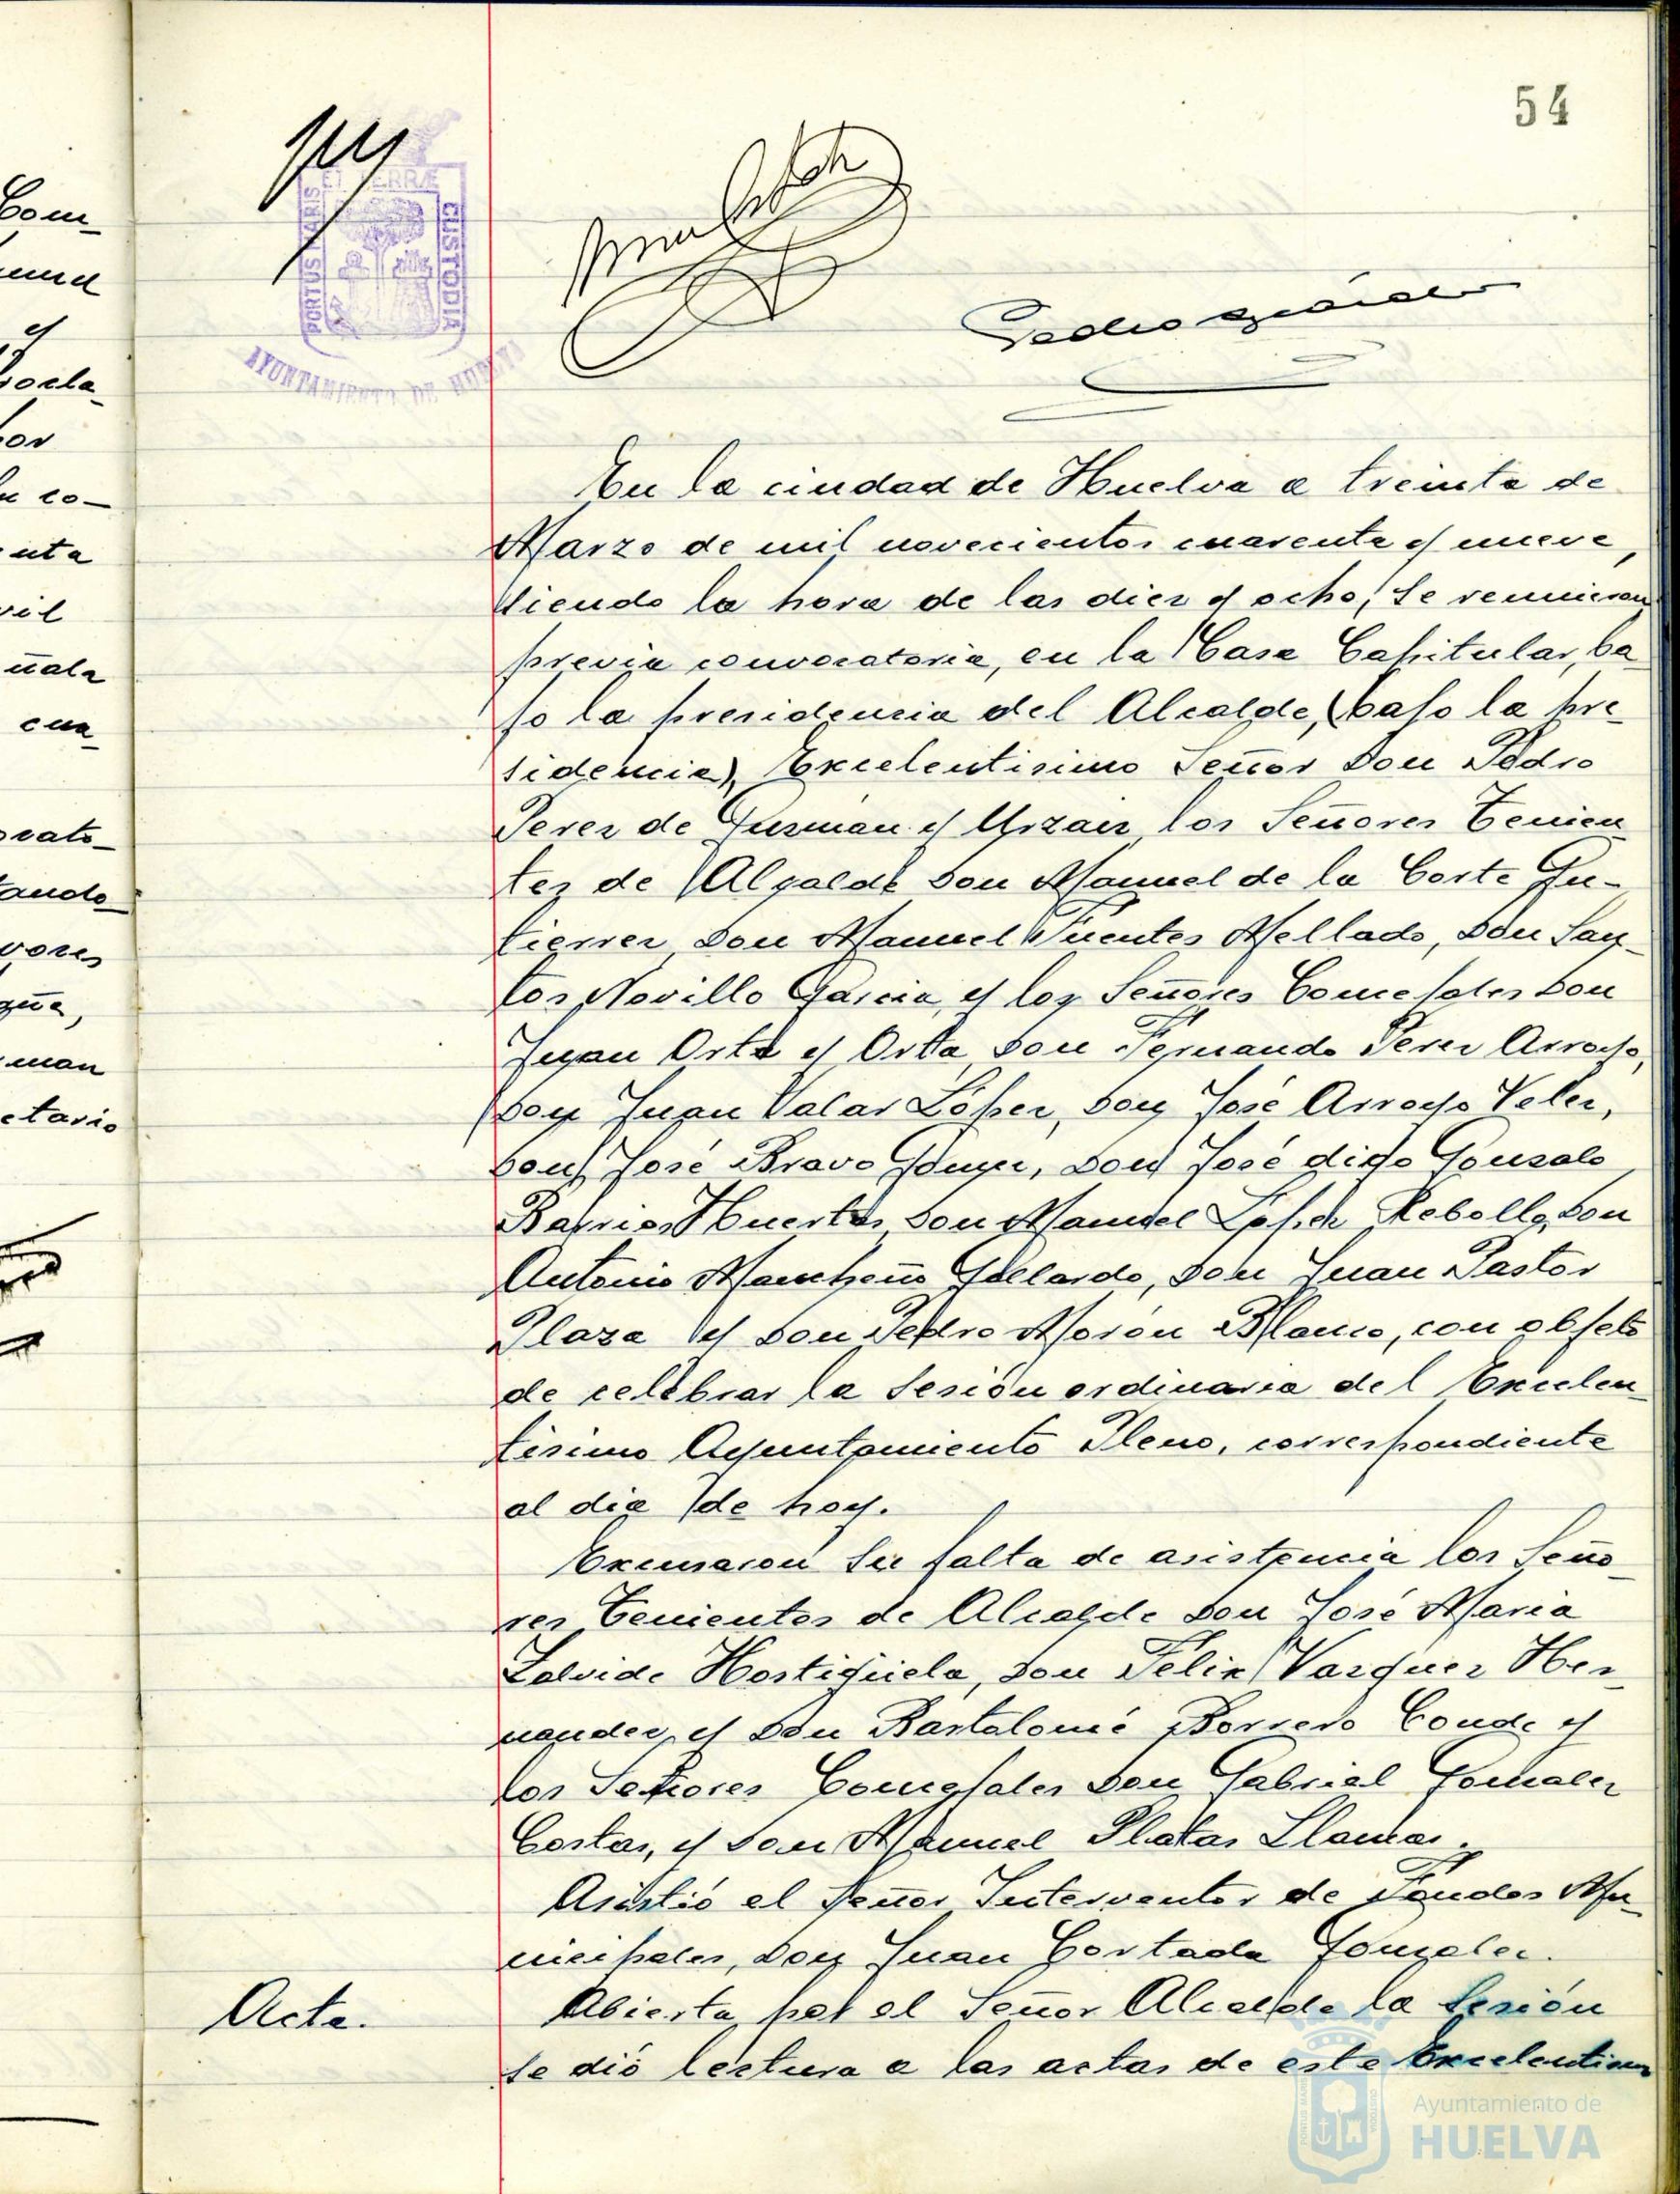 54
ET TERRÆ
PORTUS MARIS
CUSTODIA
AYUNTAMIENTO DE HUELVA
En la ciudad de Huelva a treinta de
Marzo de mil novecientos cuarenta y nueve,
siendo la hora de las diez y ocho, se reunieron
previa convocatoria, en la Casa Capitular, ba
jo la presidencia del Alcalde, (bajo la pre-
sidencia), Excelentisimo Señor Don Pedro
Perez de Guzmán y Urzaiz, los Señores Tenien
tes de Alcalde Don Manuel de la Corte Gu-
tierrez, Don Manuel Fuentes Mellado, Don San-
tos Novillo Garcia, y los Señores Concejales Don
Juan Orta y Orta, Don Fernando Perez Arroyo,
Don Juan Palar López, Don José Arroyo Velez,
Don José Bravo, Don José digo Gonzalo
Barrios Huertas, Don Manuel López Rebollo, Don
Antonio Mancheño Gallardo, Don Juan Pastor
Plaza y Don Pedro Morón Blanco, con objeto
de celebrar la sesión ordinaria del Excelen
tisimo Ayuntamiento Pleno, correspondiente
al dia de hoy.
Excusaron su falta de asistencia los Seño-
res Tenientes de Alcalde Don José Maria
Zalvide Hostigüela, Don Felix Vazquez Her-
nandez, y Don Bartolomé Borrero Conde y
los Señores Concejales Don Gabriel Gonzalez
Costas, y Don Manuel Platas Llamas.
Asistió el Señor Interventor de Fondos Mu-
nicipales, Don Juan Cortada Gonzalez.
Acta.
Abierta por el Señor Alcalde la sesión
se dió lectura a las actas de este Excelentisimo
Ayuntamiento de
HUELVA